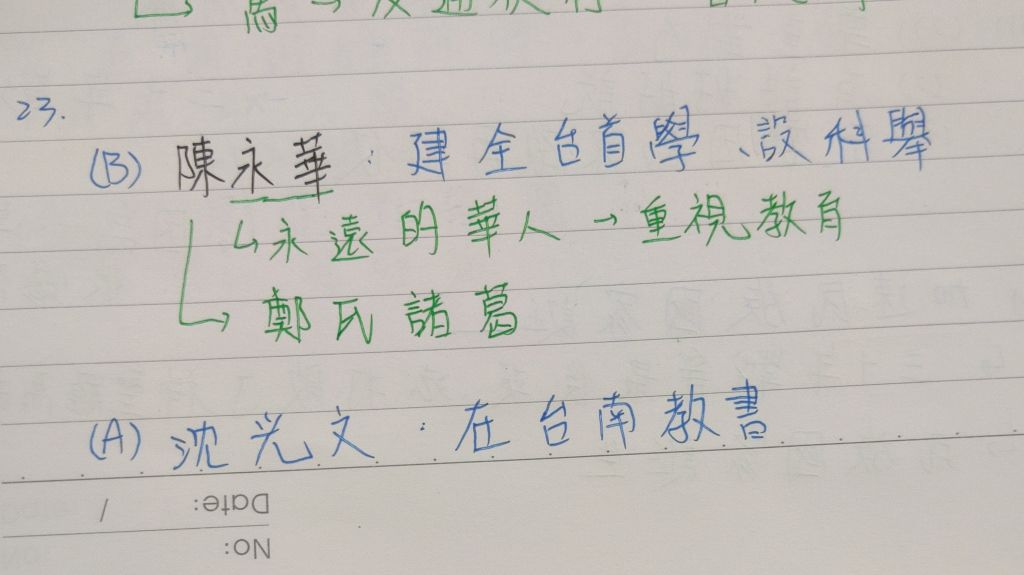 23.
(B) 陳永華：建全台首學、設科舉
↳永遠的華人→重視教育
↳鄭氏諸葛
(A) 沈光文：在台南教書
Date: /
No: